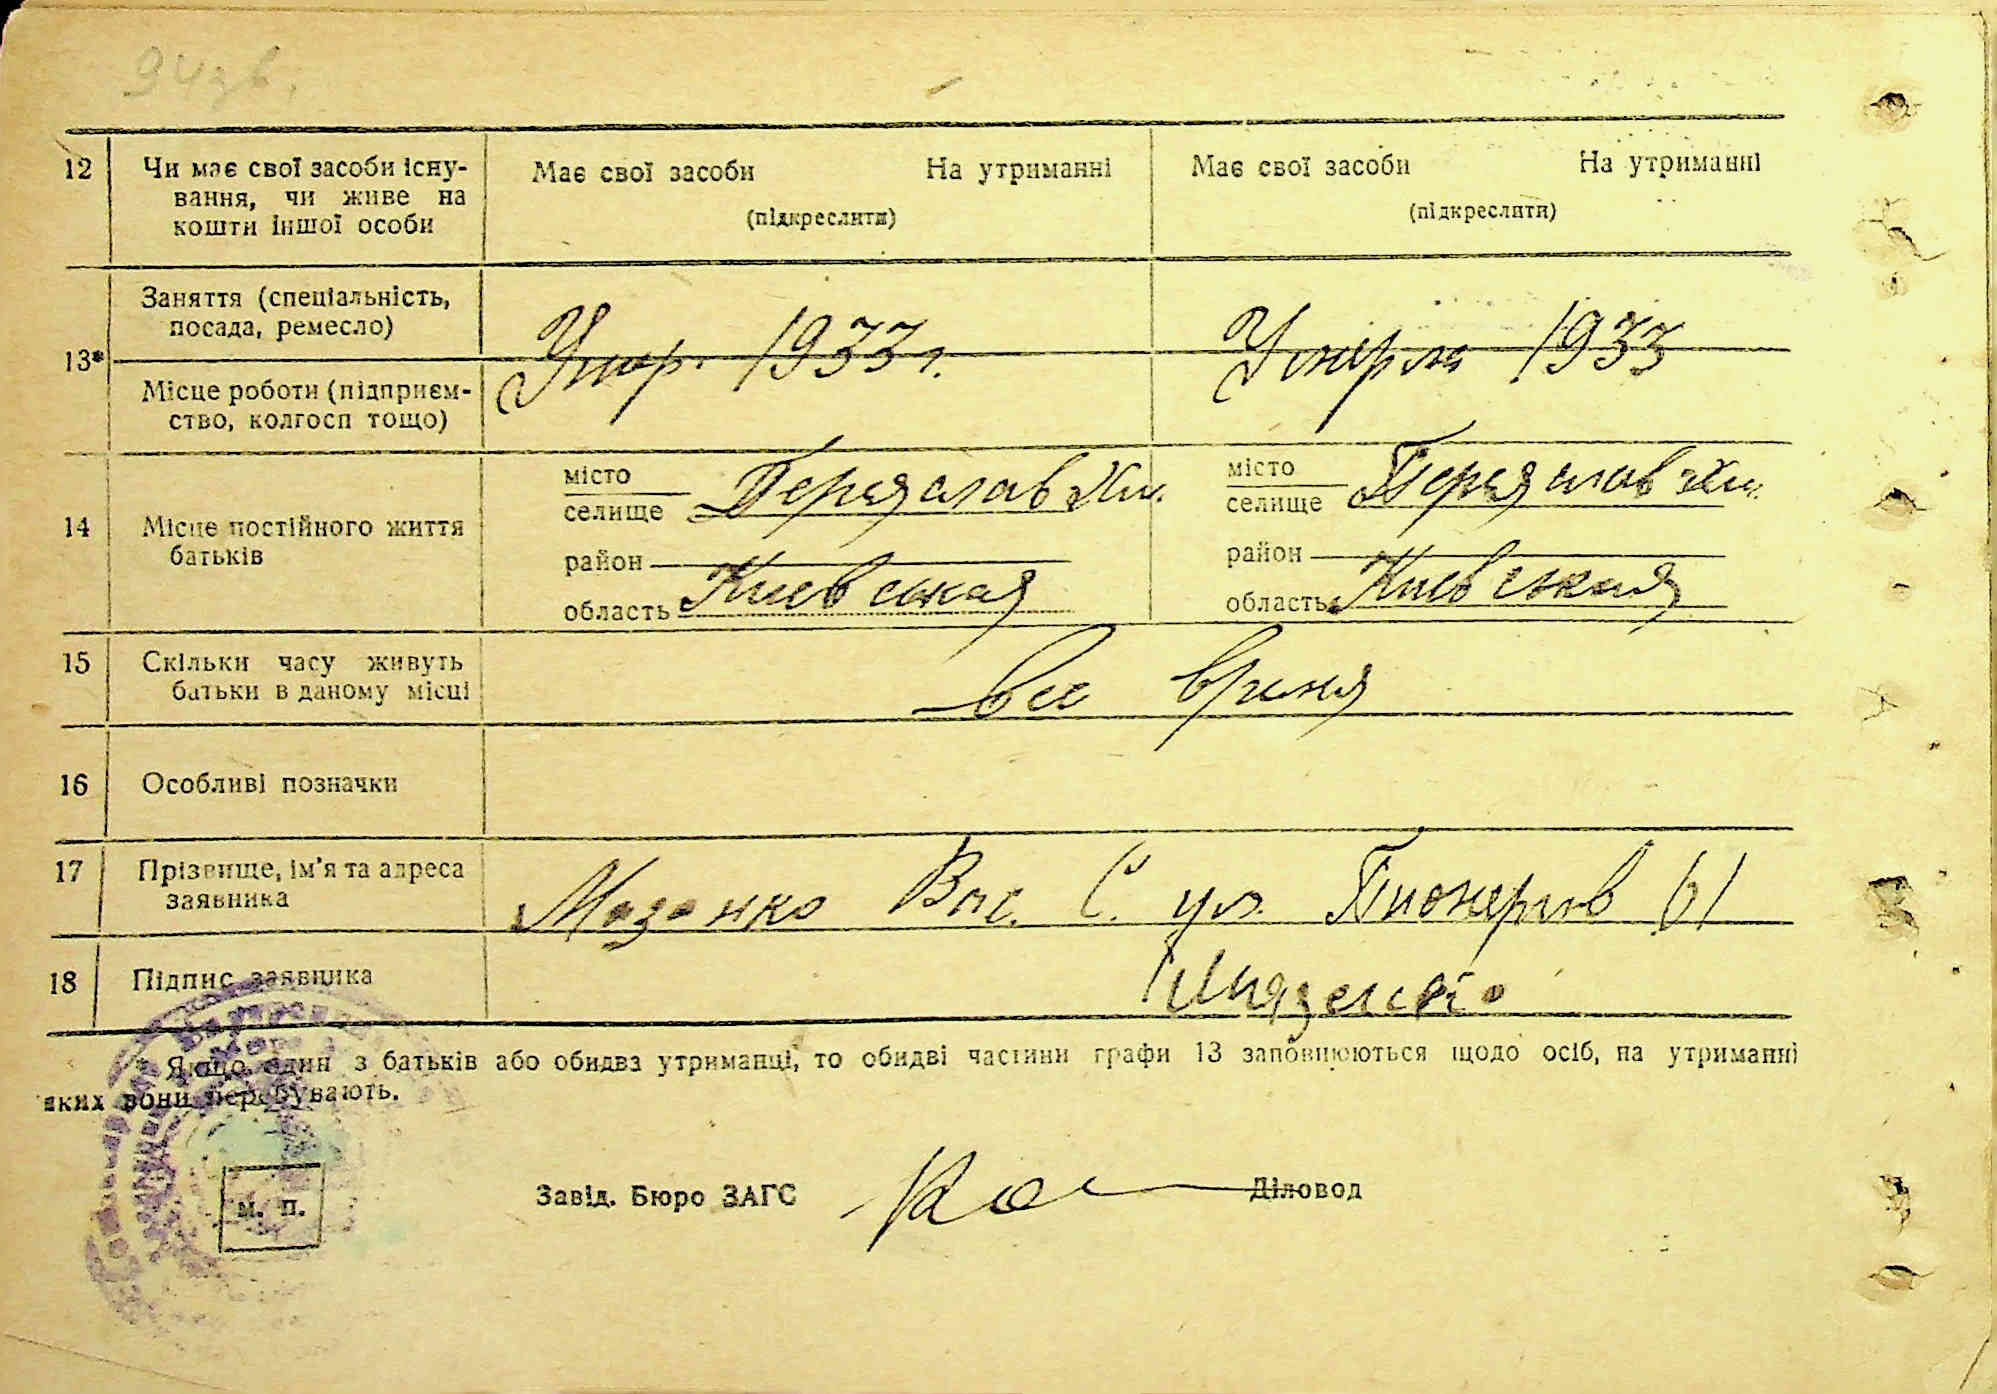 94зв.
12 Чи має свої засоби існу- Має свої засоби На утриманні Має свої засоби На утриманні
вання, чи живе на (підкреслити) (підкреслити)
кошти іншої особи
Заняття (спеціальність,
посада, ремесло)
13* Умер. 1933 г. Умерла 1933
Місце роботи (підприєм-
ство, колгосп тощо)
місто Переяслав Хм. місто Переяслав Хм.
селище селище
14 Місце постійного життя район район
батьків область Киевская область Киевская
15 Скільки часу живуть все время
батьки в даному місці
16 Особливі позначки
17 Прізвище, ім'я та адреса Мазенко Вас. С. ул. Пионеров 61
заявника
18 Підпис заявника Мазенко
* Якщо один з батьків або обидва утриманці, то обидві частини графи 13 заповнюються щодо осіб, на утриманні
яких вони перебувають.
м. п. Завід. Бюро ЗАГС Діловод